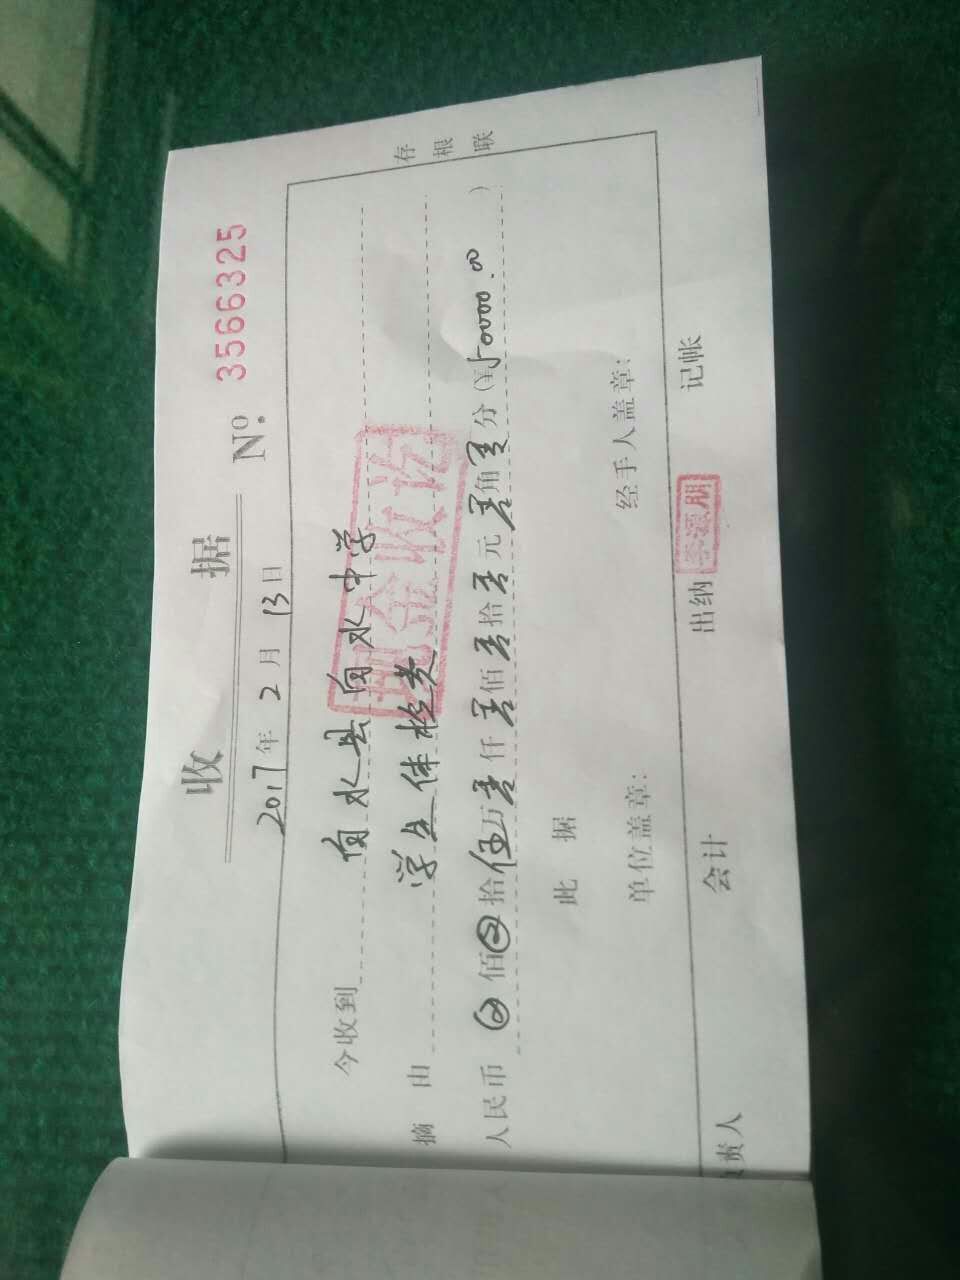 收 据
№ 3566325
2017年 2 月 13 日
存根联
今收到 向水县向水中学
现金收讫
摘 由 学生体检费
人民币 佰 拾伍万零仟零佰零拾零元零角零分(¥50000.00)
此 据
单位盖章: 经手人盖章:
负责人 会计 出纳 记帐